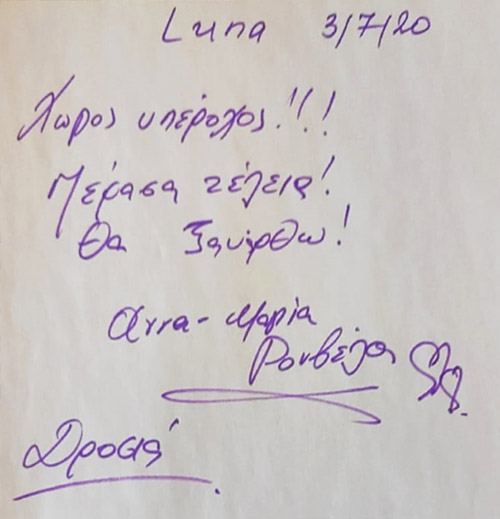 Luna 3/7/20
Χώρος υπέροχος!!!
Πέρασα τέλεια!
Θα ξαναρθω!
Αννα-Μαρία
Ρουβέλα
Δροσιά.